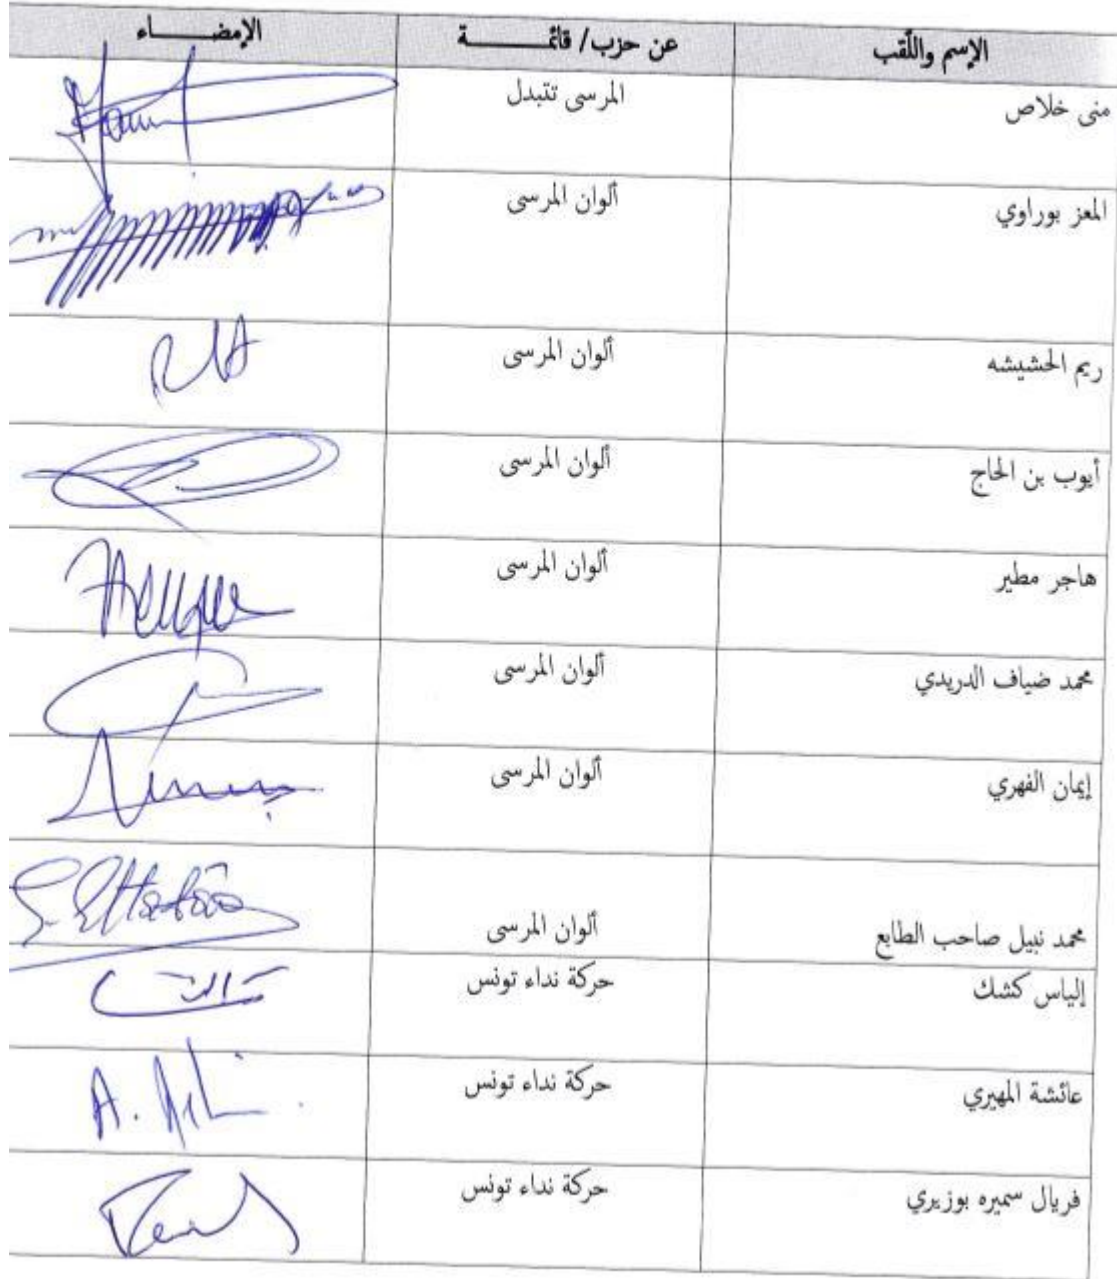 الإسم واللّقب عن حزب/ قائمـــــــة الإمضـــــــاء
منى خلاص المرسى تتبدل
المعز بوراوي ألوان المرسى
ريم الحشيشه ألوان المرسى
أيوب بن الحاج ألوان المرسى
هاجر مطير ألوان المرسى
محمد ضياف الدريدي ألوان المرسى
إيمان الفهري ألوان المرسى
محمد نبيل صاحب الطابع ألوان المرسى
إلياس كشك حركة نداء تونس
عائشة المهيري حركة نداء تونس
فريال سميره بوزيري حركة نداء تونس